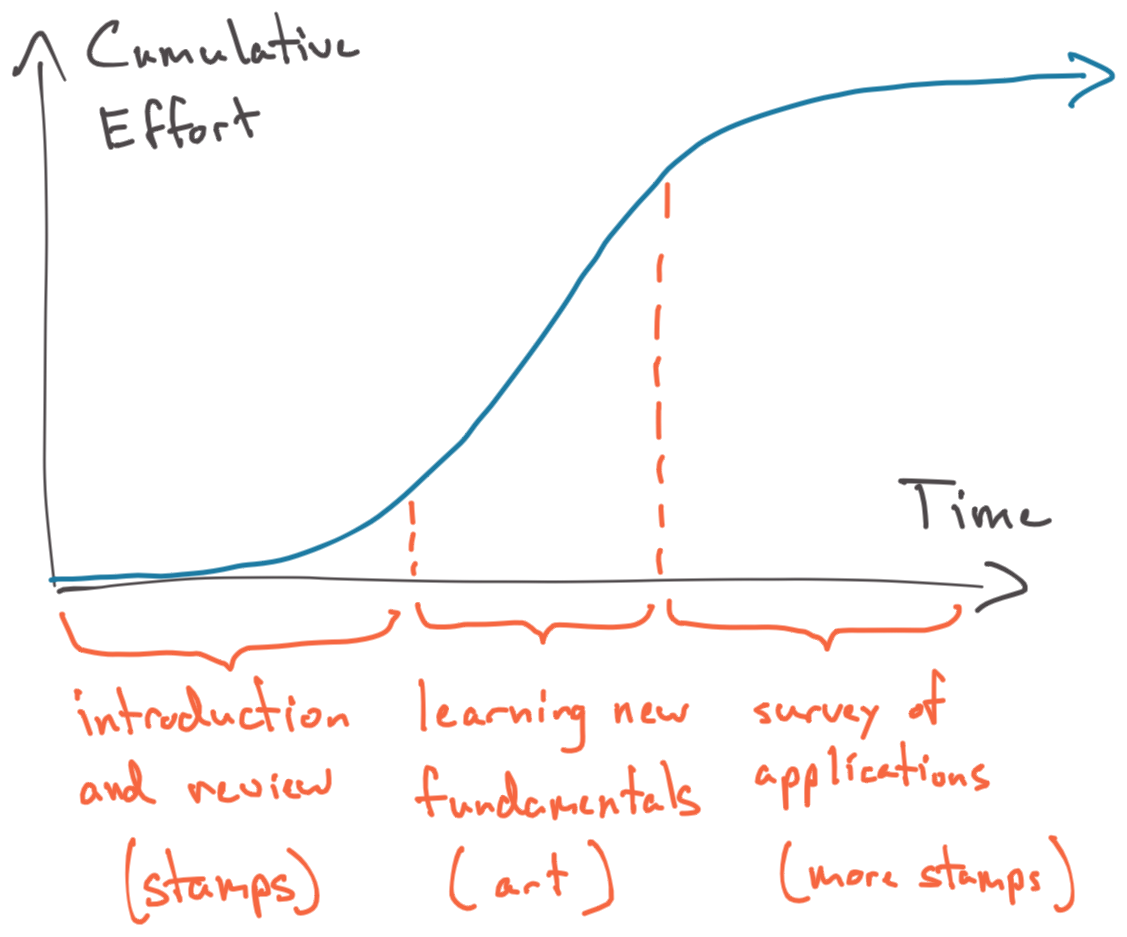 Cumulative
Effort
Time
introduction
and review
(stamps)
learning new
fundamentals
(art)
survey of
applications
(more stamps)